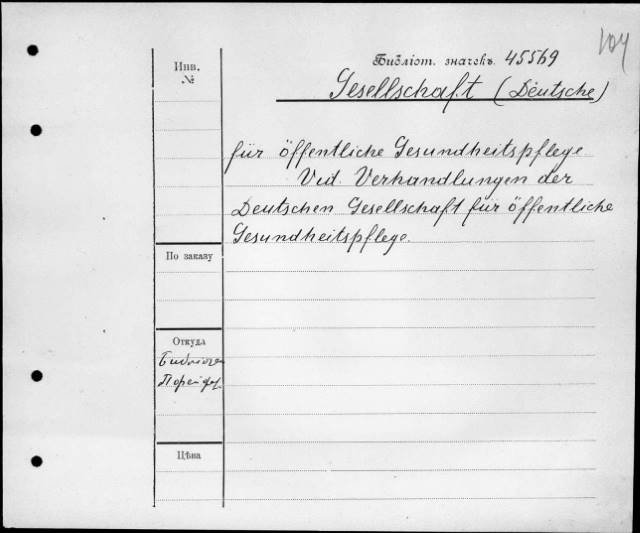 104
Инв.
№
Библіот. значекъ 45569
Gesellschaft (Deutsche)
für öffentliche Gesundheitspflege
Vid. Verhandlungen der
Deutschen Gesellschaft für öffentliche
Gesundheitspflege.
По заказу
Откуда
Цѣна